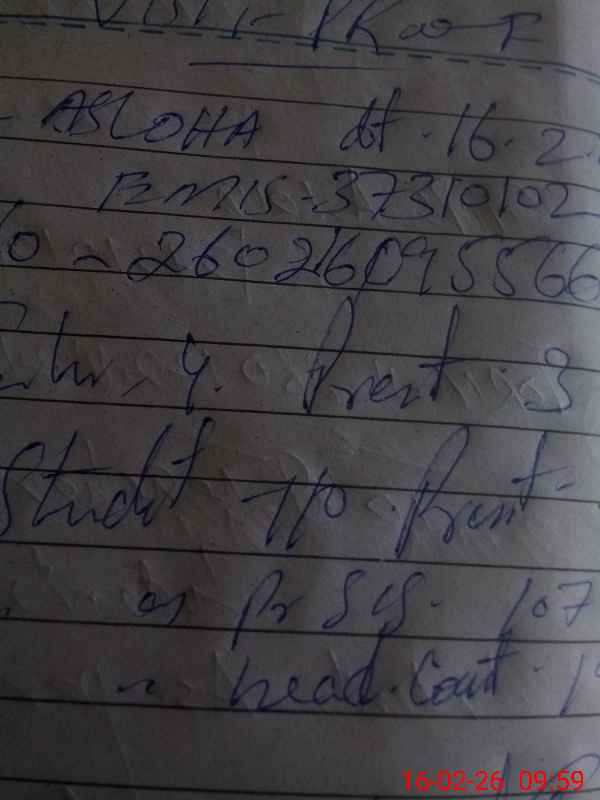 VISIT PROOF
ASLOHA dt. 16.2.
EMIS - 37310102
o - 260216095566
4. Prent 3
Studt 110 Prent
as Pr SIS. 107
~ head. Cout.
16-02-26 09:59